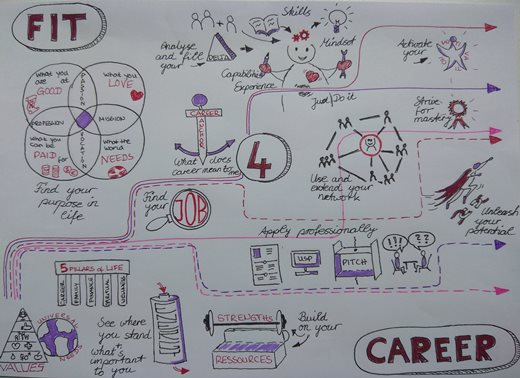 FIT
Skills
Mindset
Analyse
and fill
your
DELTA
Capabilities
Experience
Just Do it
Activate
your
What you
are at
GOOD
What you
LOVE
PASSION
PROFESSION
MISSION
VOCATION
What you
can be
PAID for
What the
world
NEEDS
Find your
purpose in
life
CAREER
What does
career mean to
me?
4
Strive
for
mastery
Use and
extend your
network
Unleash
your
potential
Find
your
JOB
Apply professionally
USP
PITCH
!!!
??
5 PILLARS OF LIFE
CAREER
FAMILY
FINANCE
VALUES
UNIVERSAL
NEEDS
See where
you stand
+ what's
important to
you
STRENGTHS
RESSOURCES
Build
on your
CAREER